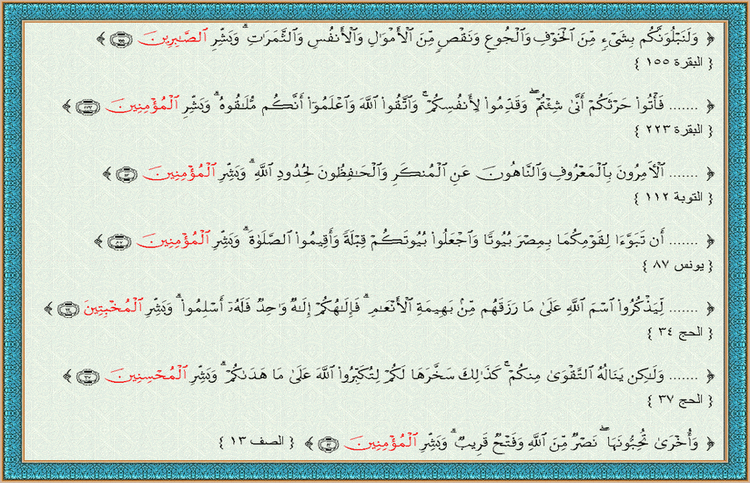 ﴿ وَلَنَبْلُوَنَّكُم بِشَىْءٍ مِّنَ ٱلْخَوْفِ وَٱلْجُوعِ وَنَقْصٍ مِّنَ ٱلْأَمْوَٰلِ وَٱلْأَنفُسِ وَٱلثَّمَرَٰتِ ۗ وَبَشِّرِ ٱلصَّـٰبِرِينَ ﴿١٥٥﴾ ﴾
{ البقرة ١٥٥ }
﴿ ....... فَأْتُوا۟ حَرْثَكُمْ أَنَّىٰ شِئْتُمْ ۖ وَقَدِّمُوا۟ لِأَنفُسِكُمْ ۚ وَٱتَّقُوا۟ ٱللَّهَ وَٱعْلَمُوٓا۟ أَنَّكُم مُّلَـٰقُوهُ ۗ وَبَشِّرِ ٱلْمُؤْمِنِينَ ﴿٢٢٣﴾ ﴾
{ البقرة ٢٢٣ }
﴿ ....... ٱلْـَٔامِرُونَ بِٱلْمَعْرُوفِ وَٱلنَّاهُونَ عَنِ ٱلْمُنكَرِ وَٱلْحَـٰفِظُونَ لِحُدُودِ ٱللَّهِ ۗ وَبَشِّرِ ٱلْمُؤْمِنِينَ ﴿١١٢﴾ ﴾
{ التوبة ١١٢ }
﴿ ....... أَن تَبَوَّءَا لِقَوْمِكُمَا بِمِصْرَ بُيُوتًا وَٱجْعَلُوا۟ بُيُوتَكُمْ قِبْلَةً وَأَقِيمُوا۟ ٱلصَّلَوٰةَ ۗ وَبَشِّرِ ٱلْمُؤْمِنِينَ ﴿٨٧﴾ ﴾
{ يونس ٨٧ }
﴿ ....... لِّيَذْكُرُوا۟ ٱسْمَ ٱللَّهِ عَلَىٰ مَا رَزَقَهُم مِّنۢ بَهِيمَةِ ٱلْأَنْعَـٰمِ ۗ فَإِلَـٰهُكُمْ إِلَـٰهٌ وَٰحِدٌ فَلَهُۥٓ أَسْلِمُوا۟ ۗ وَبَشِّرِ ٱلْمُخْبِتِينَ ﴿٣٤﴾ ﴾
{ الحج ٣٤ }
﴿ ....... وَلَـٰكِن يَنَالُهُ ٱلتَّقْوَىٰ مِنكُمْ ۚ كَذَٰلِكَ سَخَّرَهَا لَكُمْ لِتُكَبِّرُوا۟ ٱللَّهَ عَلَىٰ مَا هَدَىٰكُمْ ۗ وَبَشِّرِ ٱلْمُحْسِنِينَ ﴿٣٧﴾ ﴾
{ الحج ٣٧ }
﴿ وَأُخْرَىٰ تُحِبُّونَهَا ۖ نَصْرٌ مِّنَ ٱللَّهِ وَفَتْحٌ قَرِيبٌ ۗ وَبَشِّرِ ٱلْمُؤْمِنِينَ ﴿١٣﴾ ﴾ { الصف ١٣ }